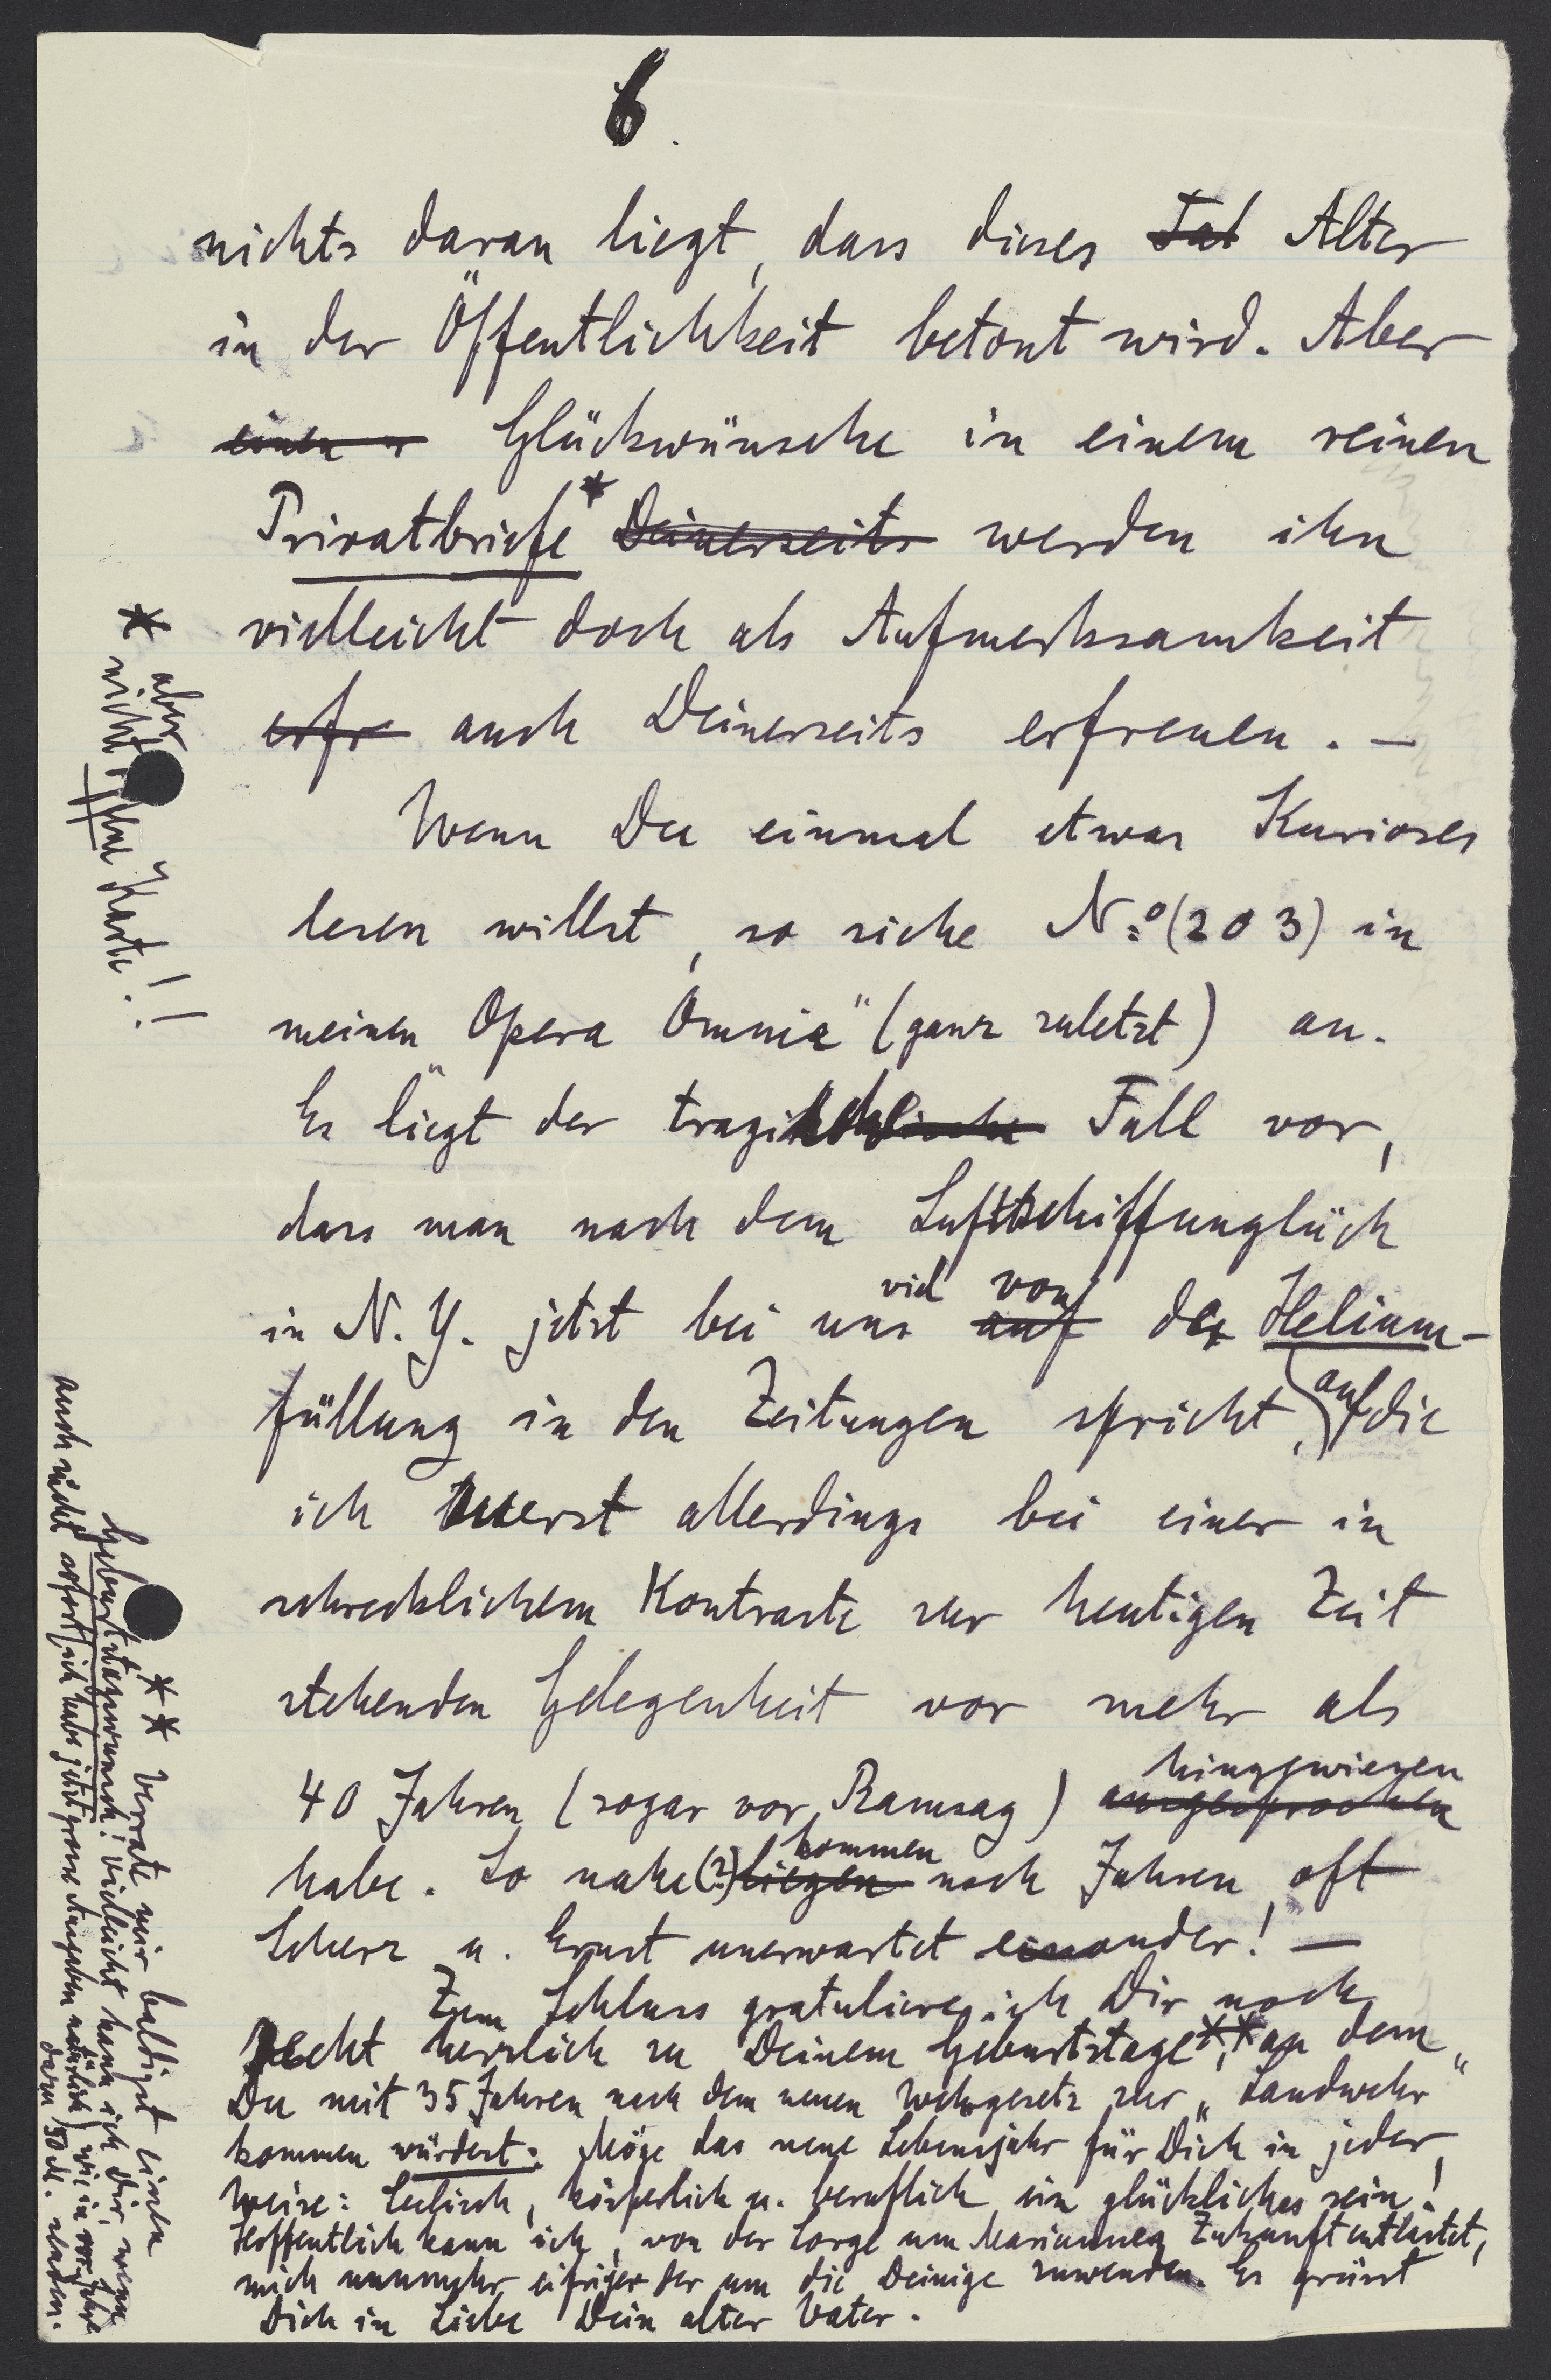 6.
nichts daran liegt, dass dieses Tal Alter
in der Öffentlichkeit betont wird. Aber
einen Glückwünsche in einem reinen
Privatbriefe* Deinerseits werden ihn
vielleicht doch als Aufmerksamkeit
erfr auch Deinerseits erfreuen. —
Wenn Du einmal etwas Kurioses
lesen willst, so siehe No (203) in
meinen „Opera Omnia" (ganz zuletzt) an.
Es liegt der Fall vor,
dass man nach dem Luftschiffunglück
viel von
in N.Y. jetzt bei uns auf der Helium-
füllung in den Zeitungen spricht, auf die
ich zuerst allerdings bei einer in
schrecklichem Kontraste zur heutigen Zeit
stehenden Gelegenheit vor mehr als
hingewiesen
40 Jahren (sogar vor Ramsay) ausgesprochen
kommen
habe. So nahe (?) liegen nach Jahren oft
Scherz u. Ernst unerwartet einander! —
Zum Schluss gratuliere ich Dir noch
recht herzlich zu Deinem Geburtstage**, an dem
Du mit 35 Jahren nach dem neuen Wehrgesetz zur „Landwehr"
kommen würdest. Möge das neue Lebensjahr für Dich in jeder
Weise: Seelisch, körperlich u. beruflich ein glückliches sein!
Hoffentlich kann ich, von der Sorge um Mariannes Zukunft entlastet,
mich nunmehr eifriger der um die Deinige zuwenden. Es grüsst
Dich in Liebe Dein alter Vater.
* aber
nicht Karte!!
** Verrate mir baldigst einen
Geburtstagswunsch! Vielleicht kann ich Dir, wenn
auch nicht sofort (ich habe jetzt grosse Ausgaben natürlich) wie im Vorjahre
dazu 50 M. senden.